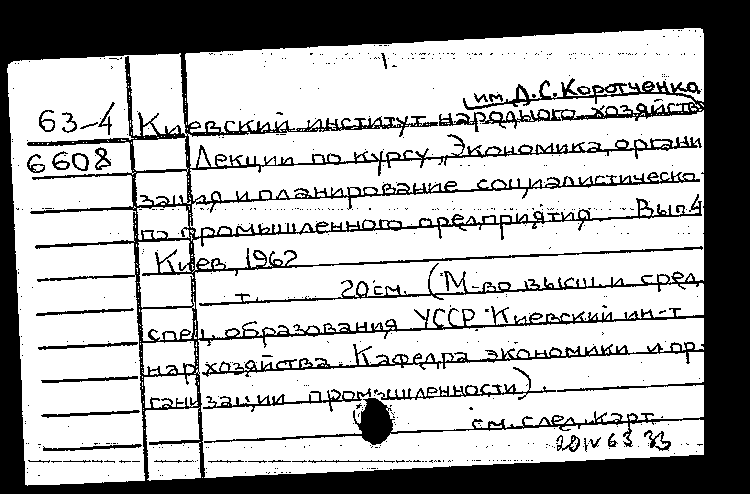 1.
им. Д.С. Коротченко
63-4 Киевский институт народного хозяйства
6608 Лекции по курсу „Экономика, органи
зация и планирование социалистическо
го промышленного предприятия Вып. 4
Киев, 1962
т. 20 см. (М-во высш. и сред.
спец. образования УССР. Киевский ин-т
нар. хозяйства. Кафедра экономики и ор-
ганизации промышленности).
см. след. карт.
20 IV 63